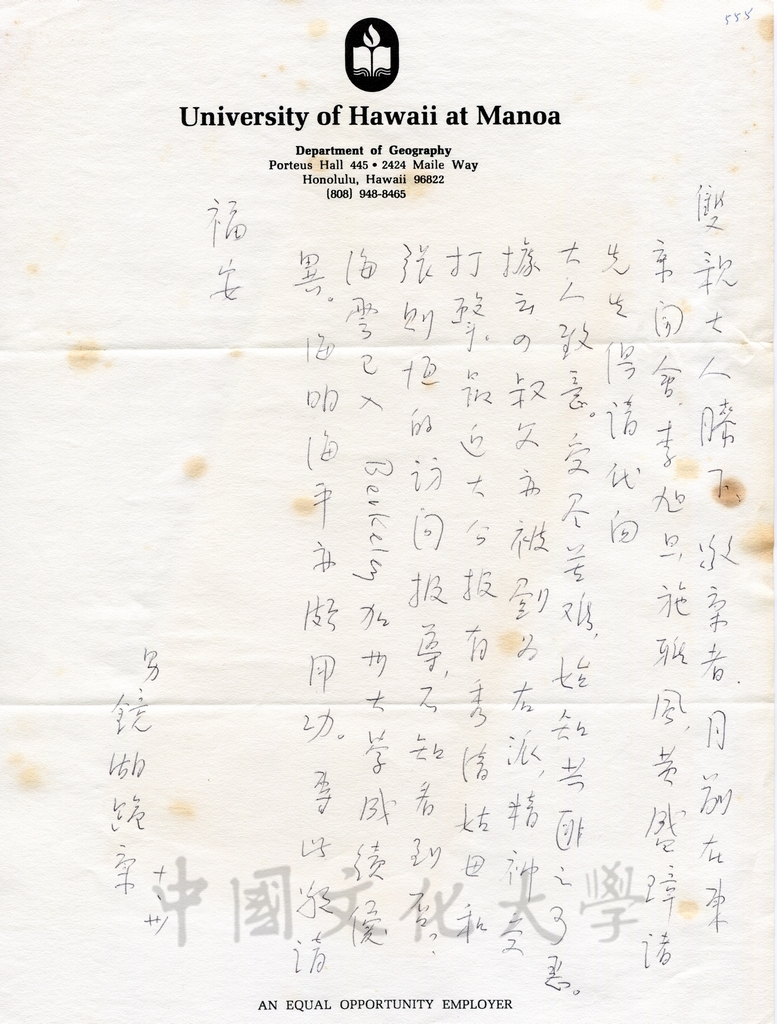 555
University of Hawaii at Manoa
Department of Geography
Porteus Hall 445 • 2424 Maile Way
Honolulu, Hawaii 96822
(808) 948-8465
雙親大人膝下，敬稟者，月前在東
京開會，李旭旦，施雅風，黃盛璋諸
先生得請代向
大人致意。受尽苦难，始知共匪之可惡。
據云四叔父亦被劃为右派，精神受
打擊。最近大公报有秀清姑母和
張則恒的訪问报导，不知看到否？
海雲已入Berkeley加州大学成績優
異。海明海平亦頗用功。專此敬請
福安
男
鏡湖跪稟
十、廿
中國文化大學
AN EQUAL OPPORTUNITY EMPLOYER